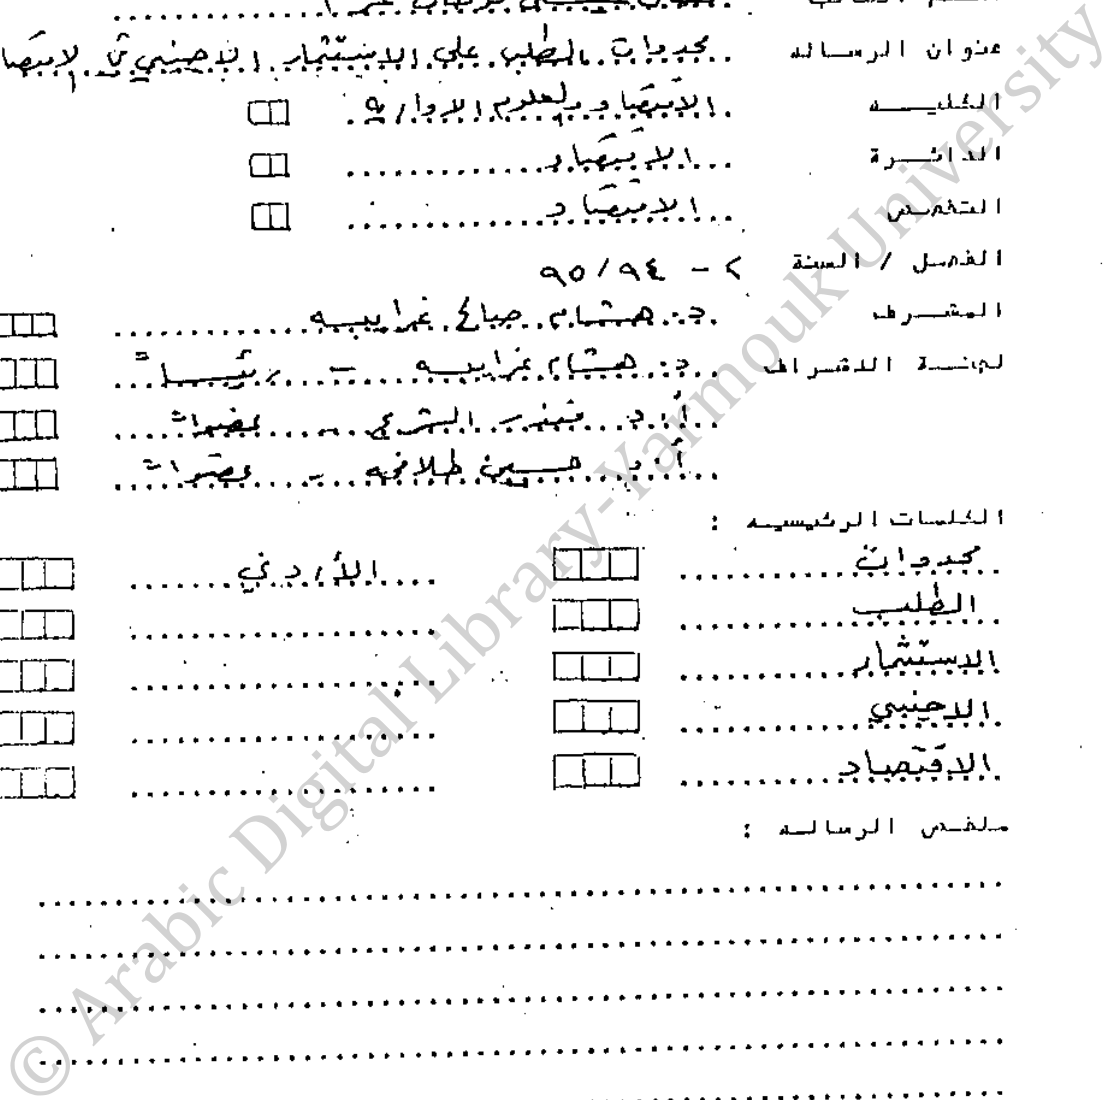 عنوان الرساله محددات الطلب على الاستثمار الاجنبي في الاقتصا
الكليـــه الاقتصاد والعلوم الادارية
الدائـــرة الاقتصاد
التخصـص الاقتصاد
الفصل / السنة ٢ - ٩٤/٩٥
المشـــرف د. هشام صباح غرايبه
لجنـــة الاشراف د. هشام غرايبه - رئيساً
أ.د. منذر الشرع - عضواً
أ.د. حسين طلافحه - عضواً
الكلمات الرئيسيه :
محددات الأردني
الطلب
الاستثمار
الاجنبي
الاقتصاد
ملخـص الرسالـه :
© Arabic Digital Library-Yarmouk University